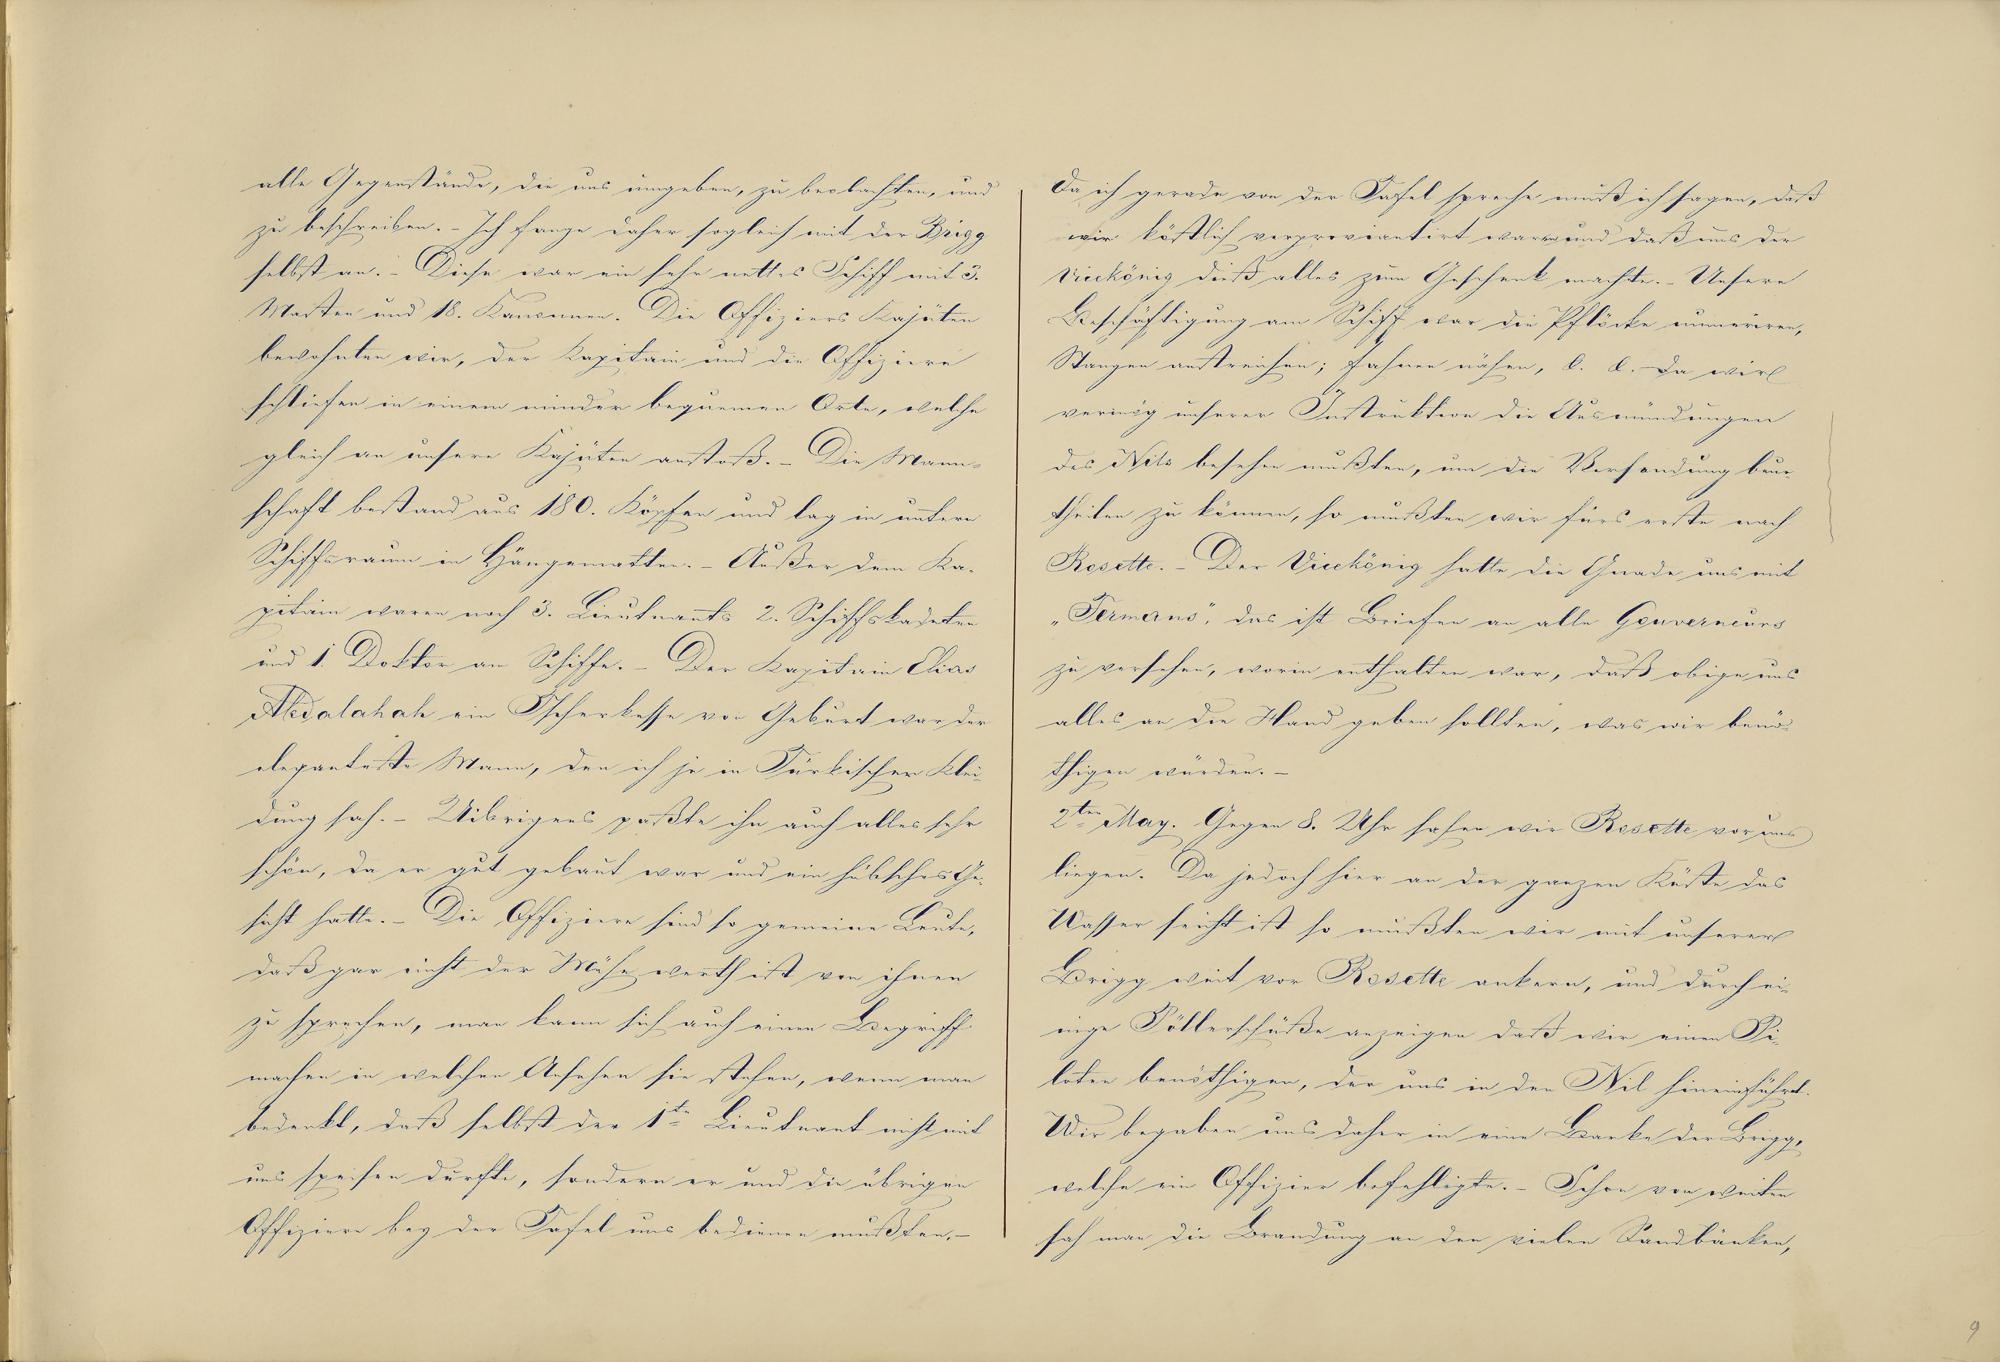 alle Gegenstände, die uns umgeben, zu beobachten, und
zu beschreiben. - Ich fange daher sogleich mit der Brigg
selbst an. - Diese war ein sehr nettes Schiff mit 3.
Masten und 18. Kanonnen. Die Offiziers Kajüten
bewohnten wir, der Kapitain und die Offiziere
schliefen in einem minder bequemen Orte, welche
gleich an unsere Kajüten anstoß. - Die Mann-
schaft bestand aus 180. Köpfen und lag in untern
Schiffsraum in Hängematten. - Außer dem Ka-
pitain waren noch 3. Lieutnants 2. Schiffskadeten
und 1. Doktor am Schiffe. - Der Kapitain Elias
Abdalahah ein Tscherkesse von Geburt war der
eleganteste Mann, den ich je in Türkischer Klei-
dung sah. - Uibrigens paßte ihn auch alles sehr
schön, da er gut gebaut war und ein hübsches Ge-
sicht hatte. - Die Offiziere sind so gemeine Leute,
daß gar nicht der Mühe werth ist von ihnen
zu sprechen, man kann sich auch einen Begriff
machen in welchen Ansehen sie stehen, wenn man
bedenkt, daß selbst der 1te Lieutnant nicht mit
uns speisen durfte, sondern er und die übrigen
Offiziere bey der Tafel uns bedienen mußten. -
Da ich gerade von der Tafel spreche muß ich sagen, daß
wir köstlich verproviantirt waren und daß uns der
Vicekönig dieß alles zum Geschenk machte. - Unsere
Beschäftigung am Schiff war die Pflöcke numeriren,
Stangen anstreichen; Fahnen nähen, &. &. Da wir
vermög unserer Instruktion die Ausmündungen
des Nils besehen mußten, um die Versandung beur-
theilen zu können, so mußten wir fürs erste nach
Rosette. - Der Vicekönig hatte die Gnade uns mit
„Fermans", das ist Briefen an alle Gouverneurs
zu versehen, worin enthalten war, daß obige uns
alles an die Hand geben sollten, was wir benö-
thigen würden. -
2ten May. Gegen 8. Uhr sahen wir Rosette vor uns
liegen. Da jedoch hier an der ganzen Küste das
Wasser seicht ist so mußten wir mit unserer
Brigg weit vor Rosette ankern, und durch ei-
nige Pöllerschüße anzeigen daß wir einen Pi-
loten benöthigen, der uns in den Nil hineinführt.
Wir begaben uns daher in eine Barke der Brigg,
welche ein Offizier befehligte. - Schon von weiten
sah man die Brandung an den vielen Sandbänken,
9